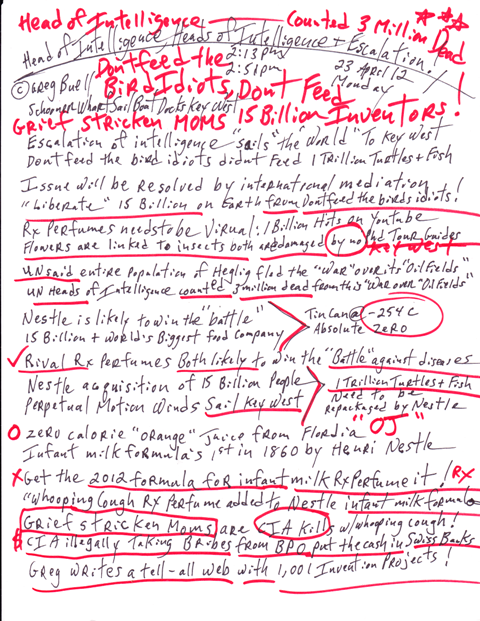 Head of Intelligence Counted 3 Million Dead
Head of Intelligence, Heads of Intelligence + Escalation!
Dont feed the 2:13pm 23 April 12
© Greg Buell 2:51pm Monday
Bird Idiots, Dont Feed
Schooner Wharf Sail Boat Docks Key West
Grief Stricken Moms 15 Billion Inventors!
Escalation of intelligence "sails" "the World" To Key West
Dont feed the bird idiots didnt Feed 1 Trillion Turtles + Fish
Issue will be resolved by international mediation
"Liberate" 15 Billion on Earth from Dontfeed the birds idiots!
Rx Perfumes needs to be Virual: 1 Billion Hits on Youtube
Flowers are linked to insects both are damaged by no Phd Tour Guides
Key West
UN said entire Population of Heglig fled the "War" over its "Oil Fields"
UN Heads of Intelligence counted 3 million dead from this "War over" "Oil Fields"
Nestle is likely to win the "battle" Tin Can @ -254 C
15 Billion + World's Biggest Food Company Absolute Zero
Rival Rx Perfumes Both likely to win the "Battle" against diseases
Nestle acquisition of 15 Billion People 1 Trillion Turtles + Fish
Perpetual Motion Winds Sail Key West Need to be
repackaged by Nestle
Zero calorie "orange" Juice from Flordia "OJ"
Infant milk formula's 1st in 1860 by Henri Nestle
X Get the 2012 formula for infant milk Rx Perfume it! RX
"Whooping Cough Rx Perfume added to Nestle infant milk formula
Grief Stricken Moms are CIA Kills w/whooping cough!
$ CIA illegally Taking Bribes from BPO put the cash in Swiss Banks
Greg writes a tell-all web with 1,001 Invention Projects!